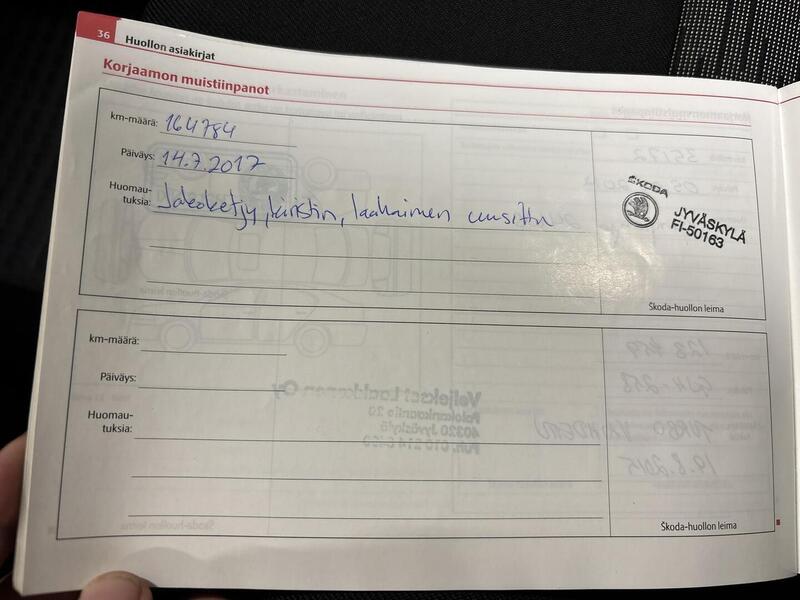 36 Huollon asiakirjat
Korjaamon muistiinpanot
km-määrä: 164784
Päiväys: 14.7.2017
Huomau-
tuksia: Jakoketju, kiristin, laahaimen uusittu
ŠKODA
JYVÄSKYLÄ
FI-50163
Škoda-huollon leima
km-määrä:
Päiväys:
Huomau-
tuksia:
Škoda-huollon leima